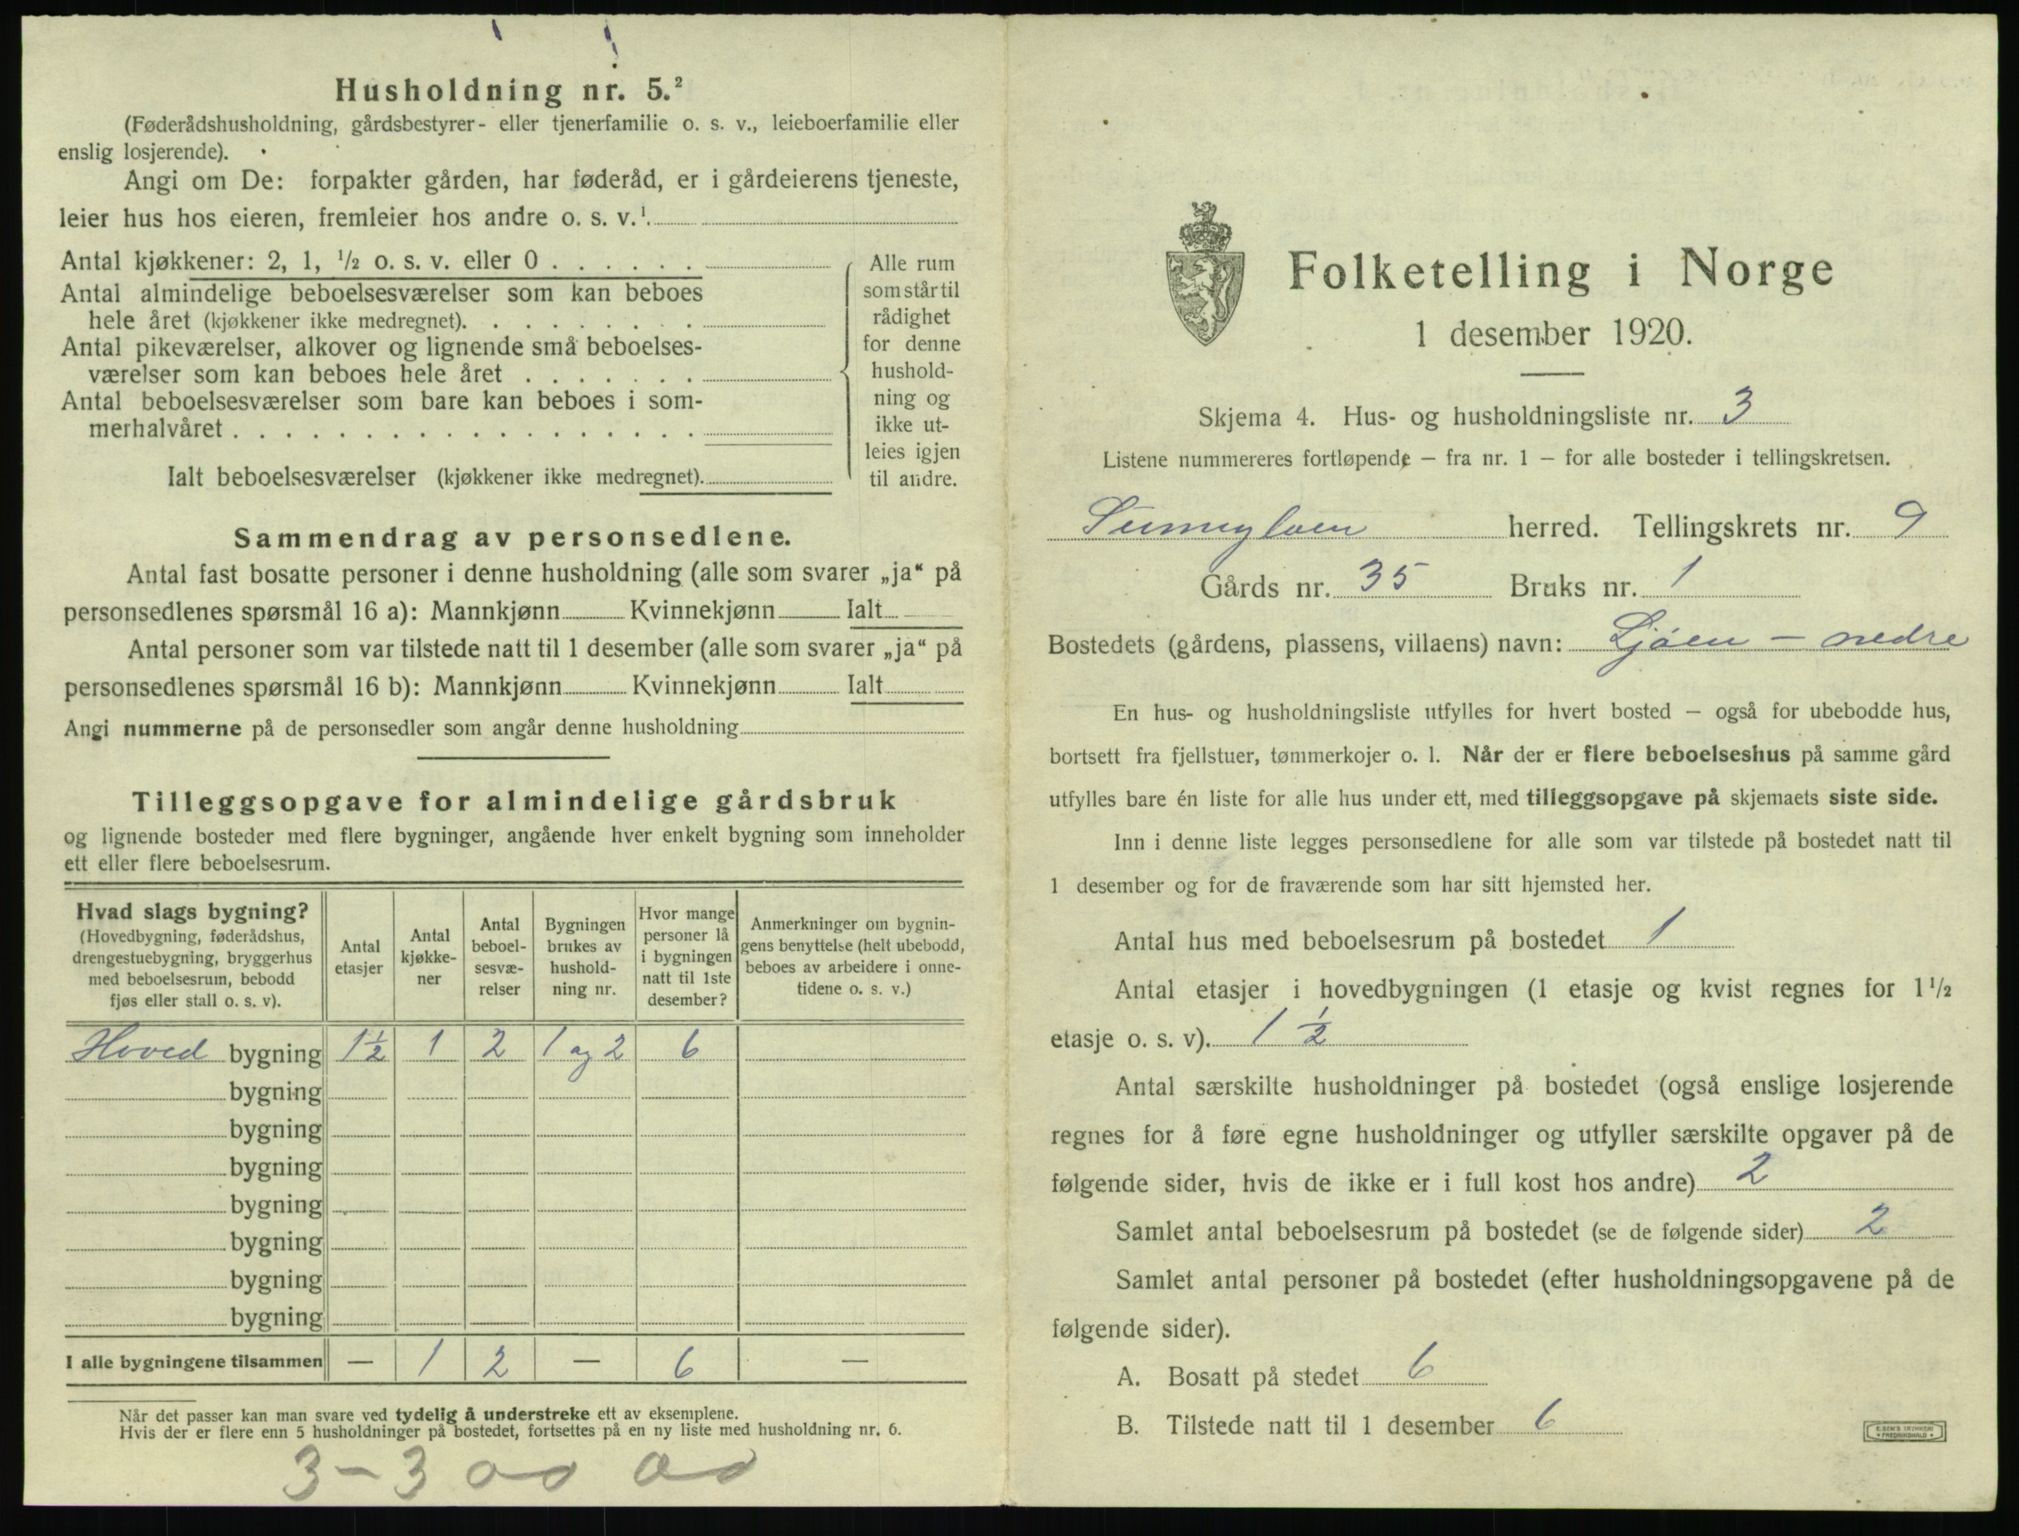 Husholdning nr. 5.²
(Føderådshusholdning, gårdsbestyrer- eller tjenerfamilie o. s. v., leieboerfamilie eller
enslig losjerende).
Angi om De: forpakter gården, har føderåd, er i gårdeierens tjeneste,
leier hus hos eieren, fremleier hos andre o. s. v.¹
Antal kjøkkener: 2, 1, ½ o. s. v. eller 0
Antal almindelige beboelsesværelser som kan beboes
hele året (kjøkkener ikke medregnet).
Antal pikeværelser, alkover og lignende små beboelses-
værelser som kan beboes hele året
Antal beboelsesværelser som bare kan beboes i som-
merhalvåret
Ialt beboelsesværelser (kjøkkener ikke medregnet).
Alle rum
som står til
rådighet
for denne
hushold-
ning og
ikke ut-
leies igjen
til andre.
Sammendrag av personsedlene.
Antal fast bosatte personer i denne husholdning (alle som svarer „ja“ på
personsedlenes spørsmål 16 a): Mannkjønn Kvinnekjønn Ialt
Antal personer som var tilstede natt til 1 desember (alle som svarer „ja“ på
personsedlenes spørsmål 16 b): Mannkjønn Kvinnekjønn Ialt
Angi nummerne på de personsedler som angår denne husholdning
Tilleggsopgave for almindelige gårdsbruk
og lignende bosteder med flere bygninger, angående hver enkelt bygning som inneholder
ett eller flere beboelsesrum.
Hvad slags bygning?
(Hovedbygning, føderådshus,
drengestuebygning, bryggerhus
med beboelsesrum, bebodd
fjøs eller stall o. s. v).
Antal
etasjer
Antal
kjøkke-
ner
Antal
beboel-
sesvæ-
relser
Bygningen
brukes av
hushold-
ning nr.
Hvor mange
personer lå
i bygningen
natt til 1ste
desember?
Anmerkninger om bygnin-
gens benyttelse (helt ubebodd,
beboes av arbeidere i onne-
tidene o. s. v.)
Hoved bygning 1½ 1 2 1 og 2 6
bygning
bygning
bygning
bygning
bygning
bygning
bygning
I alle bygningene tilsammen — 1 2 — 6 —
Når det passer kan man svare ved tydelig å understreke ett av eksemplene.
Hvis der er flere enn 5 husholdninger på bostedet, fortsettes på en ny liste med husholdning nr. 6.
3-3
Folketelling i Norge
1 desember 1920.
Skjema 4. Hus- og husholdningsliste nr. 3
Listene nummereres fortløpende – fra nr. 1 – for alle bosteder i tellingskretsen.
Sunnylven herred. Tellingskrets nr. 9
Gårds nr. 35 Bruks nr. 1
Bostedets (gårdens, plassens, villaens) navn: Ljøen – nedre
En hus- og husholdningsliste utfylles for hvert bosted – også for ubebodde hus,
bortsett fra fjellstuer, tømmerkojer o. l. Når der er flere beboelseshus på samme gård
utfylles bare én liste for alle hus under ett, med tilleggsopgave på skjemaets siste side.
Inn i denne liste legges personsedlene for alle som var tilstede på bostedet natt til
1 desember og for de fraværende som har sitt hjemsted her.
Antal hus med beboelsesrum på bostedet 1
Antal etasjer i hovedbygningen (1 etasje og kvist regnes for 1½
etasje o. s. v). 1½
Antal særskilte husholdninger på bostedet (også enslige losjerende
regnes for å føre egne husholdninger og utfyller særskilte opgaver på de
følgende sider, hvis de ikke er i full kost hos andre) 2
Samlet antal beboelsesrum på bostedet (se de følgende sider) 2
Samlet antal personer på bostedet (efter husholdningsopgavene på de
følgende sider).
A. Bosatt på stedet 6
B. Tilstede natt til 1 desember 6